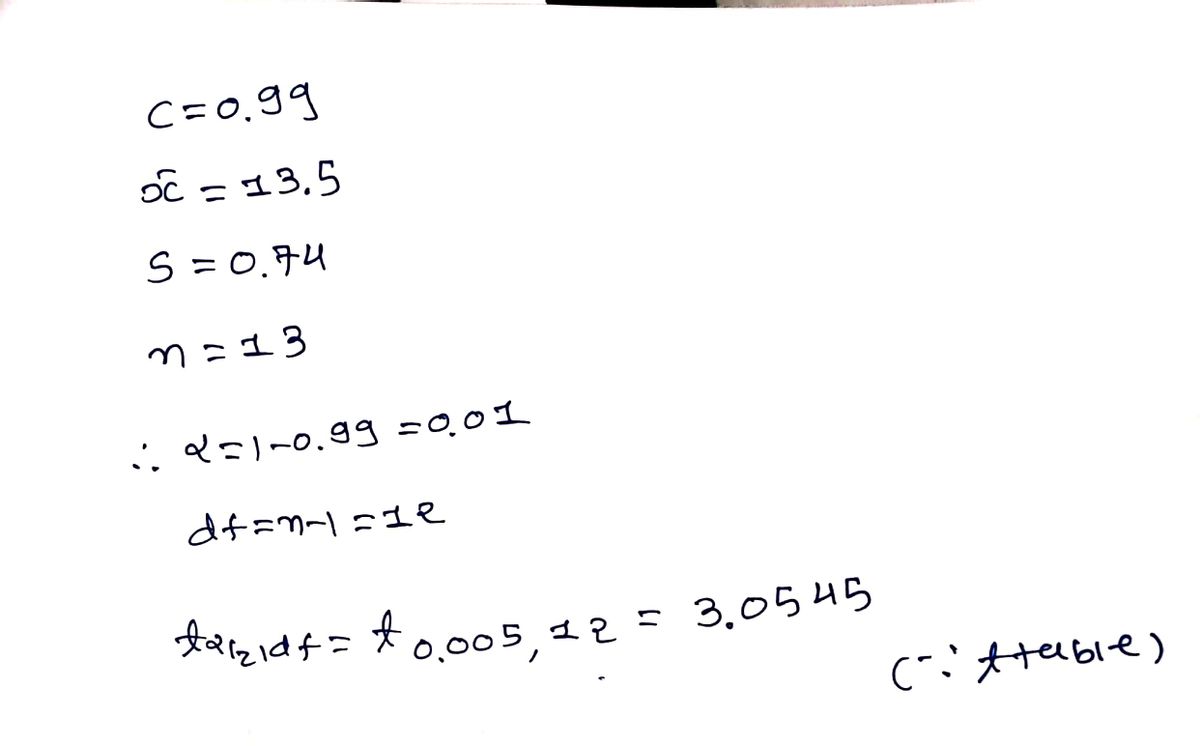 C=0.99
x̄ = 13.5
S = 0.74
n = 13
∴ α=1-0.99 =0.01
df=n-1 =12
tα/2,df = t0.005,12 = 3.0545
(∵ t table)